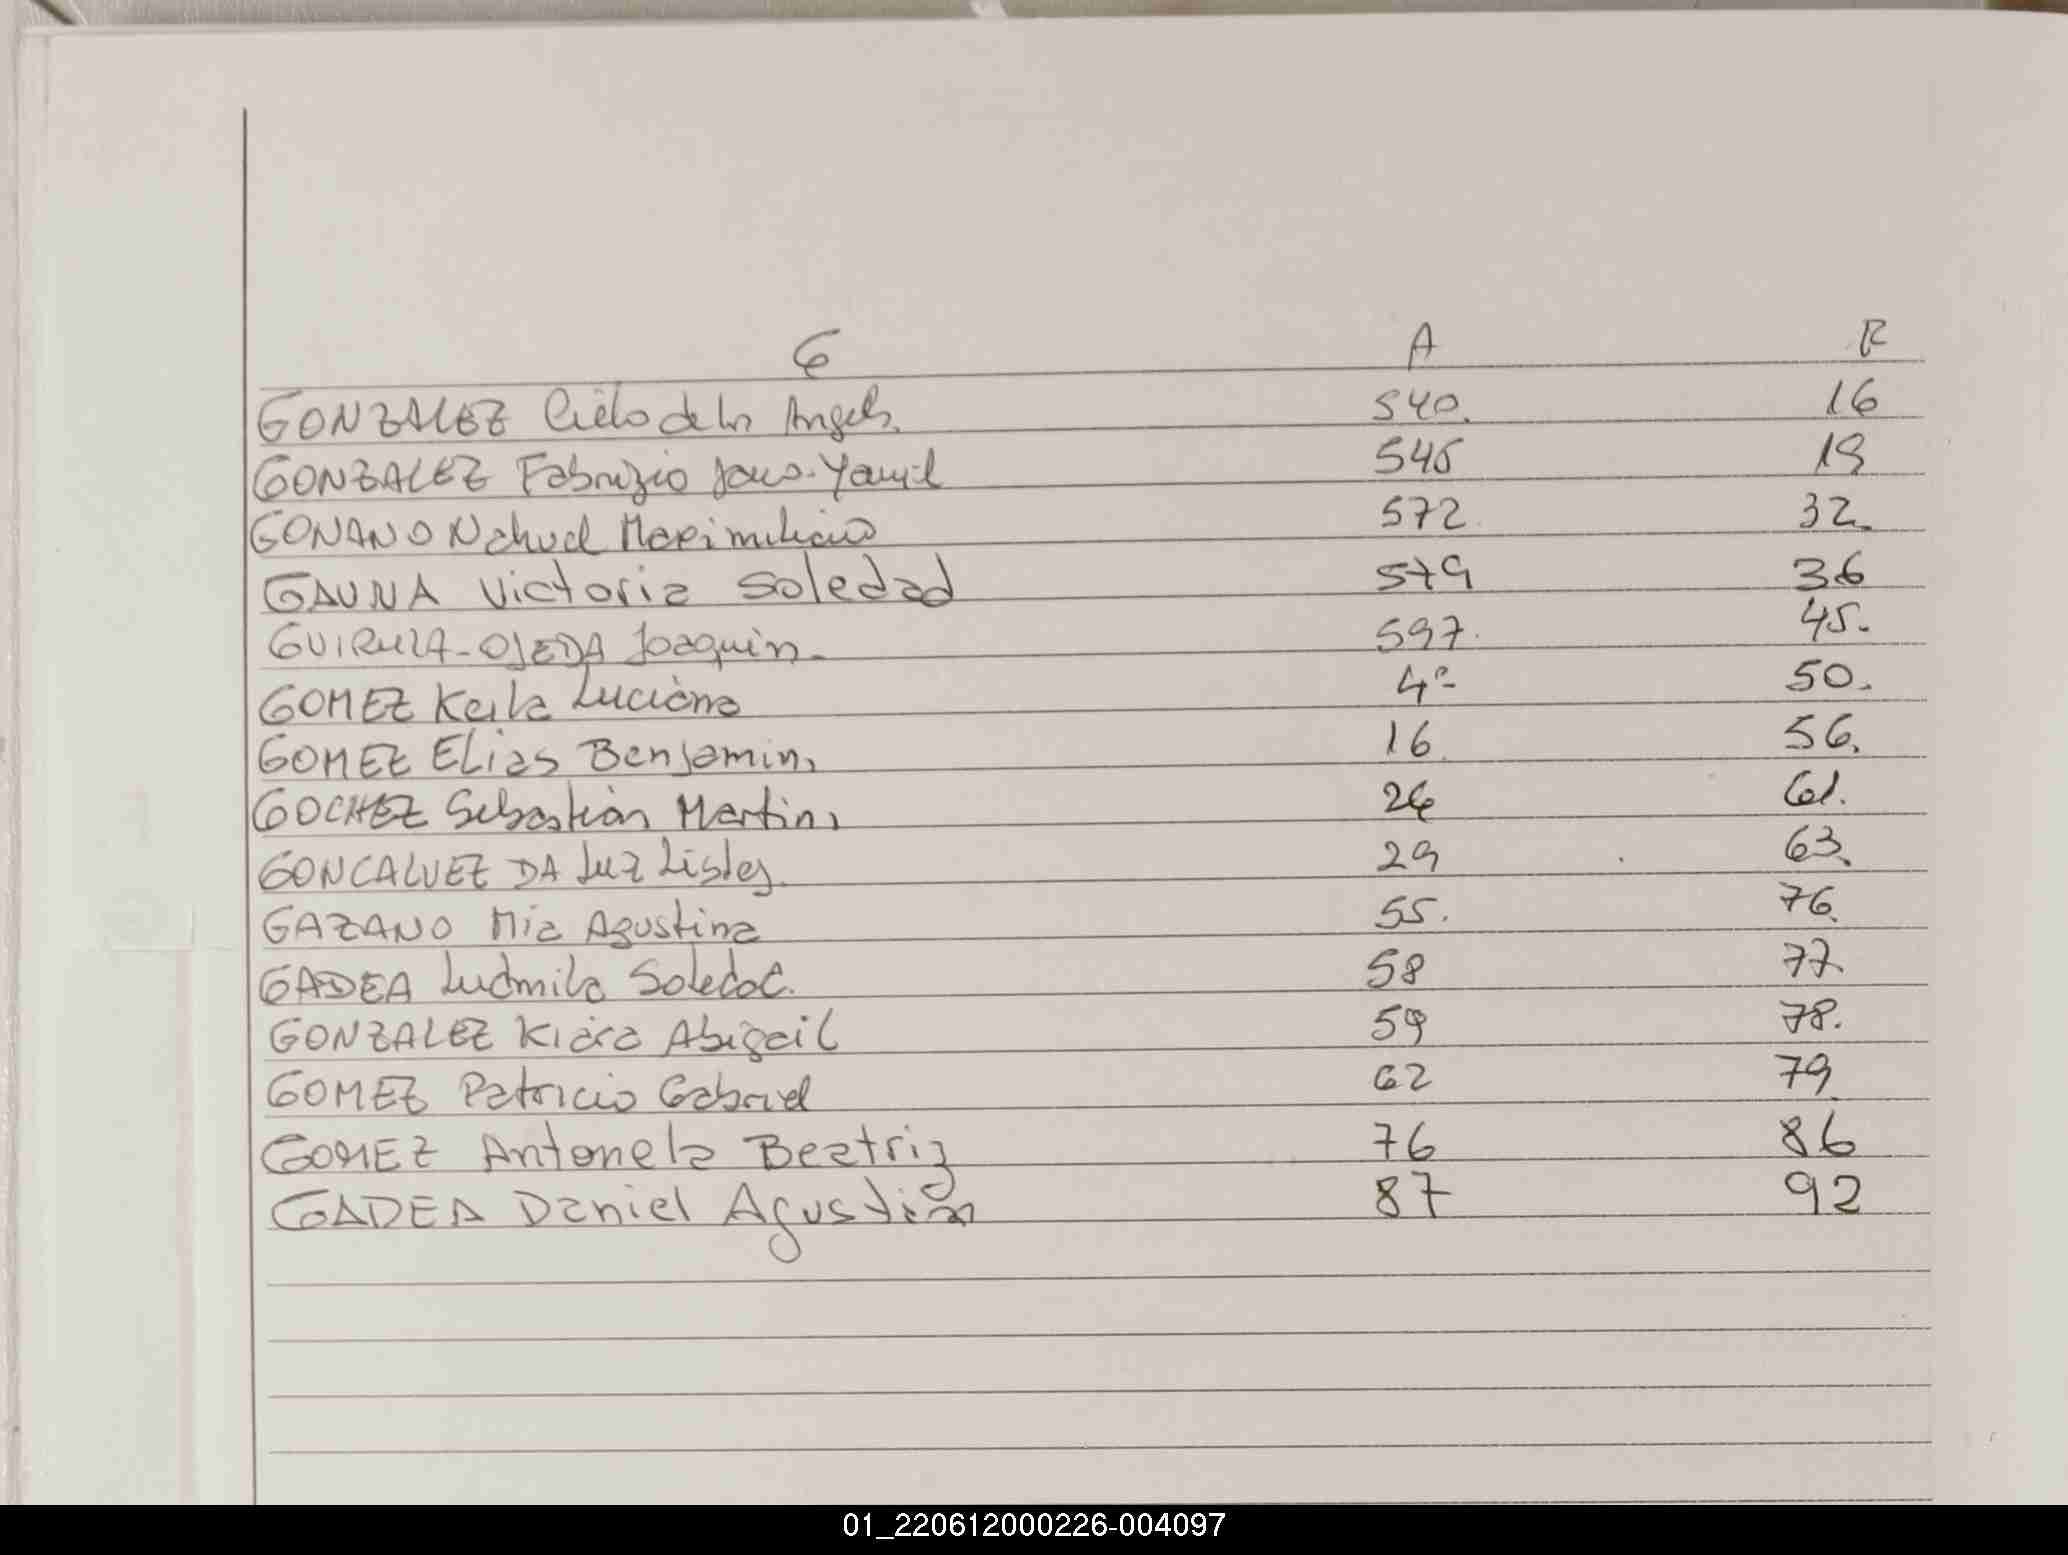 G A F
GONZALEZ Cielo de los Angels. 540. 16
GONZALEZ Fabrizio Jano-Yamil 545 19
GONANO Nahuel Maximiliano 572 32.
GAUNA Victoria Soledad 579 36
OJEDA Joaquin. 597. 45.
GOMEZ Keila Luciana 4º 50.
GOMEZ Elias Benjamin, 16 56.
GOCHEZ Sebastián Martin, 26 61.
GONCALVEZ DA Luz 29 63.
GAZANO Mia Agustina 55. 76.
GADEA Ludmila Soledad. 58 77.
GONZALEZ Kiara Abigail 59 78.
GOMEZ Patricio Gabriel 62 79
GOMEZ Antonela Beatriz 76 86
GADEA Daniel Agustin 87 92
01_220612000226-004097